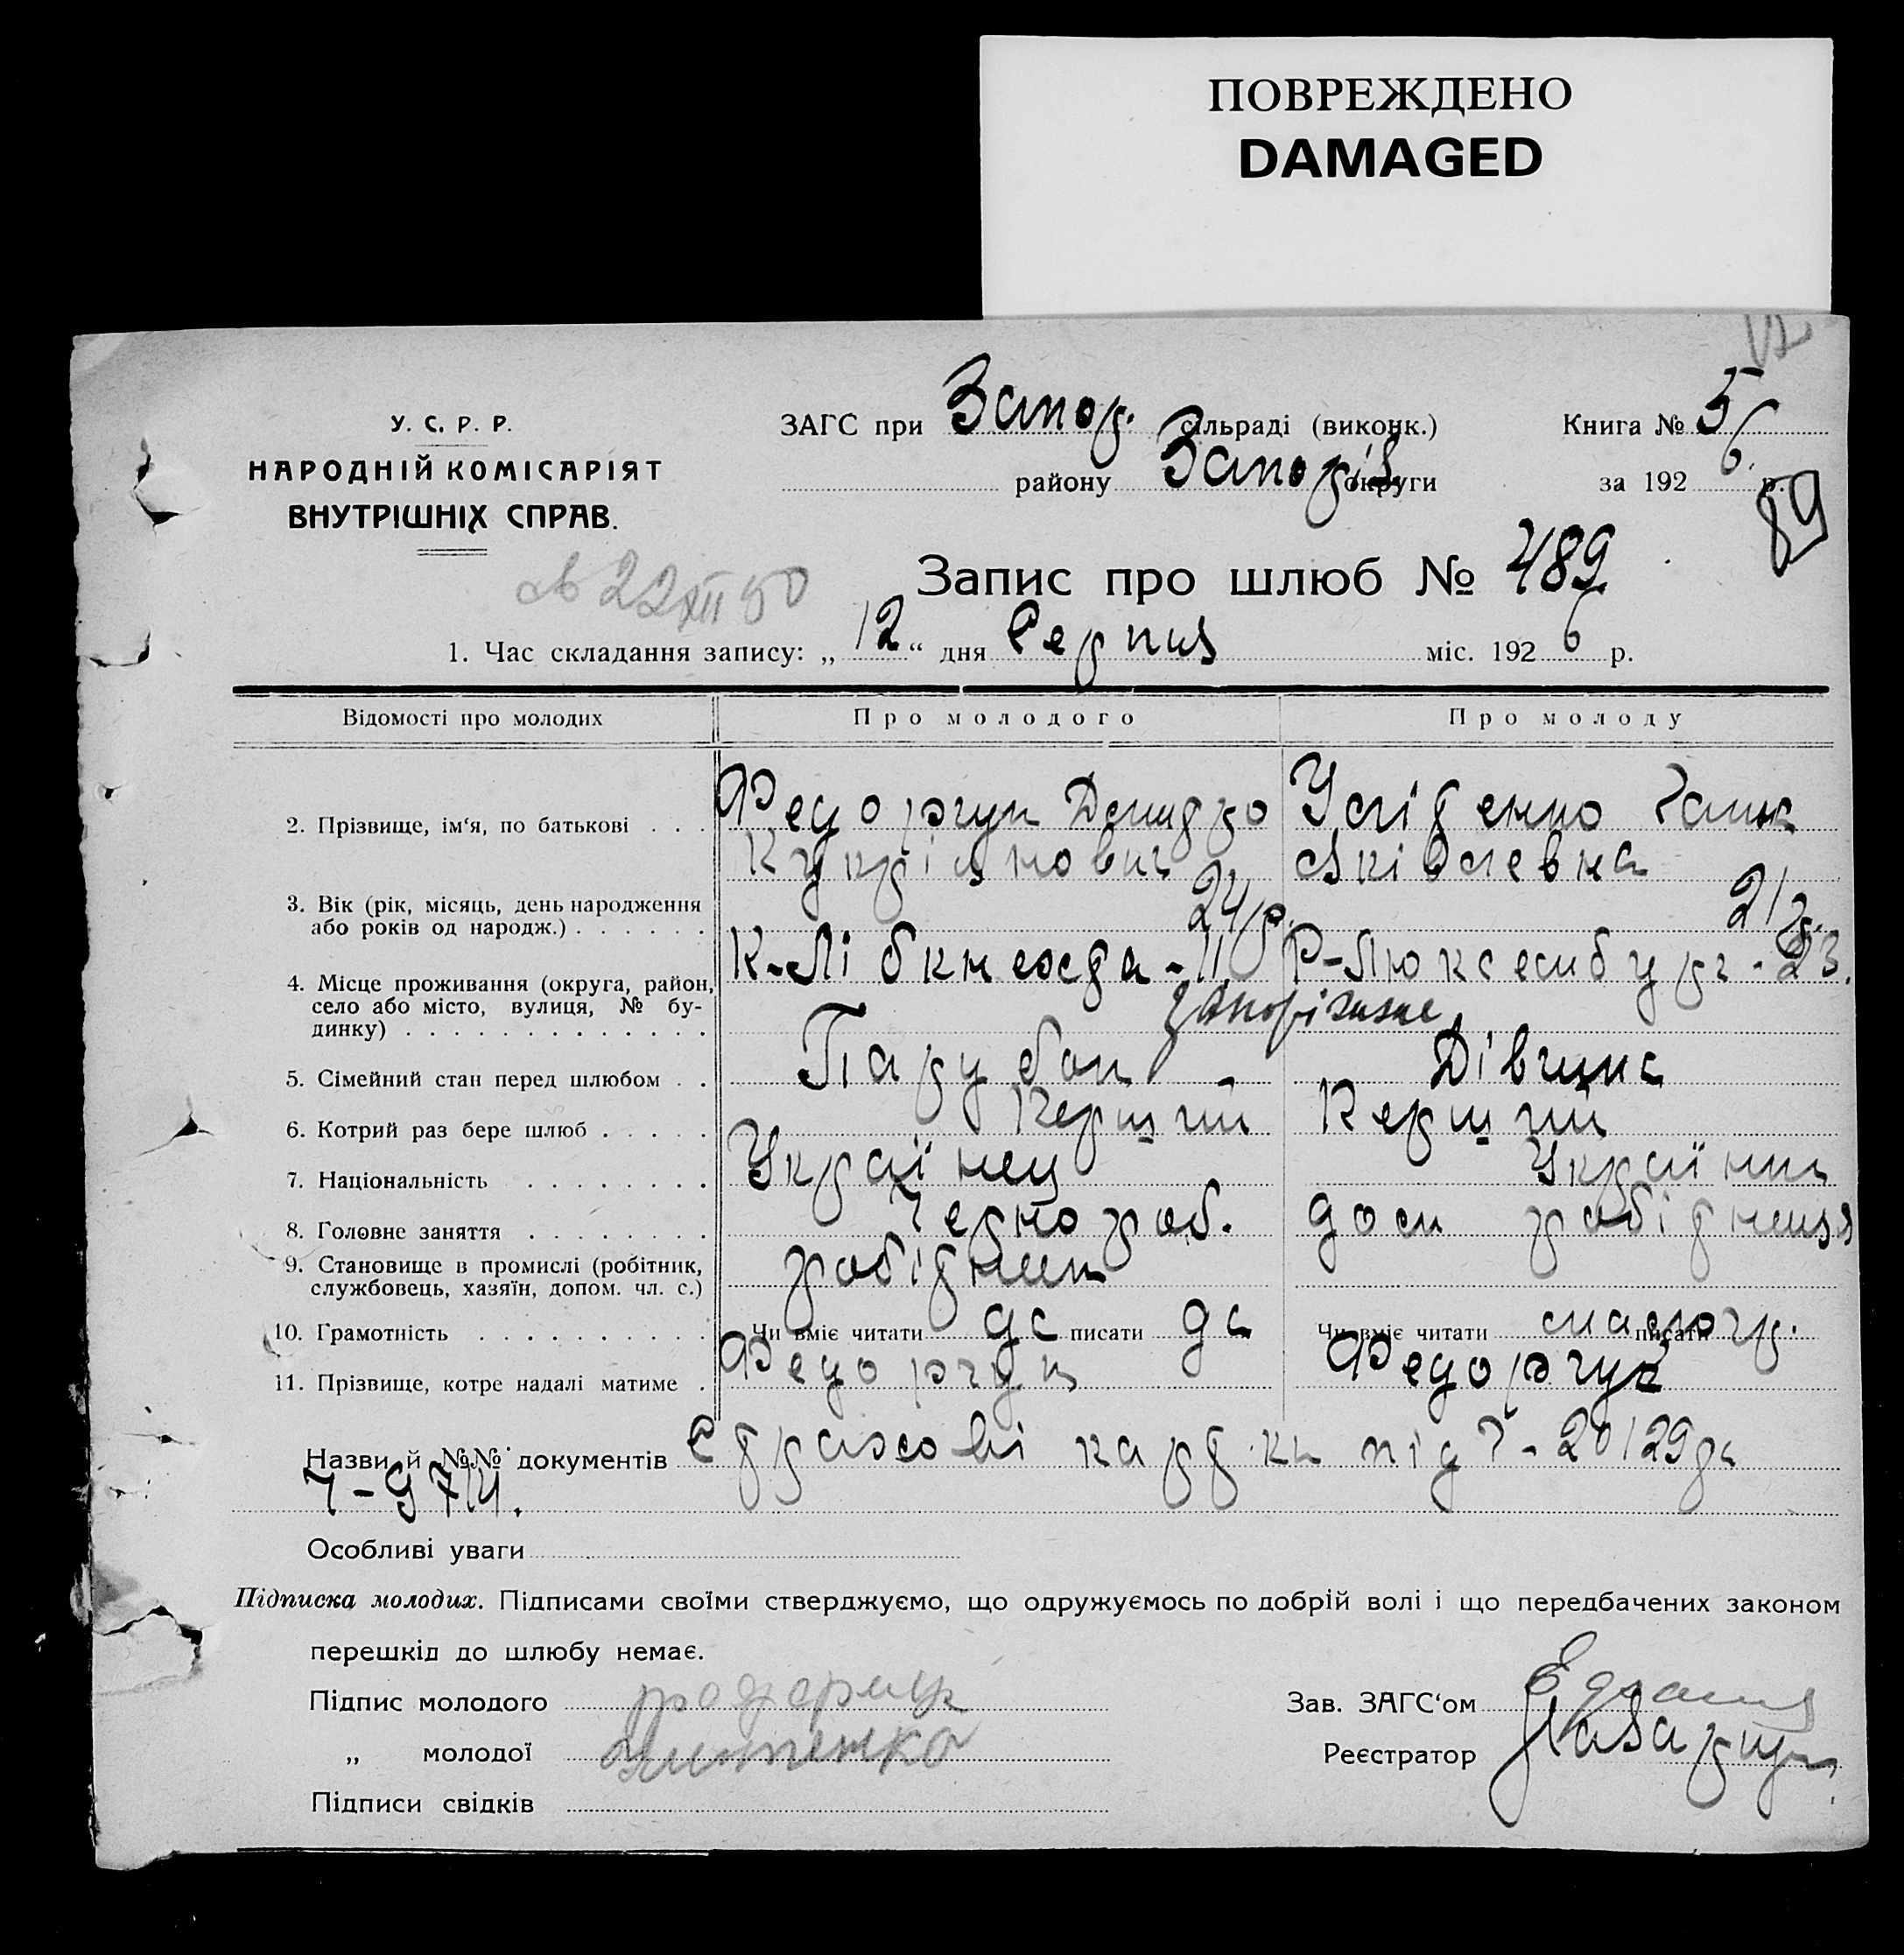 ПОВРЕЖДЕНО
DAMAGED
У. С. Р. Р.
НАРОДНІЙ КОМІСАРІЯТ
ВНУТРІШНІХ СПРАВ.
ЗАГС при Запор. сільраді (виконк.)
району Запоріз округи
Книга № 5
за 192 6 р.
89
Запис про шлюб № 489
22 XII 50
1. Час складання запису: „ 12 “ дня Серпня міс. 192 6 р.
Відомості про молодих Про молодого Про молоду
2. Прізвище, ім‘я, по батькові . . . Федорчук Усітенко
Яківлевна
3. Вік (рік, місяць, день народження
або років од народж.) . . . . . . 24 р. 21 р.
4. Місце проживання (округа, район, К-Лібкнехта - 11 Р-Люксембург - 23.
село або місто, вулиця, № бу-
динку) . . . . . . . . . . . . . Запоріжжє
5. Сімейний стан перед шлюбом . . Парубок Дівчина
6. Котрий раз бере шлюб . . . . . Перший Перший
7. Національність . . . . . . . . Українец Українк
8. Головне заняття . . . . . . . . Чернороб. дом робітниця
9. Становище в промислі (робітник,
службовець, хазяїн, допом. чл. с.) робітник
10. Грамотність . . . . . . . . . . Чи вміє читати да писати да Чи вміє читати малогр. писати
11. Прізвище, котре надалі матиме . Федорчук Федорчук
Назви й №№ документів Страхові картки під Ч - 20129 да
Ч - 9714.
Особливі уваги
Підписка молодих. Підписами своїми стверджуємо, що одружуємось по добрій волі і що передбачених законом
перешкід до шлюбу немає.
Підпис молодого
„ молодої
Підписи свідків
Зав. ЗАГС‘ом
Реєстратор